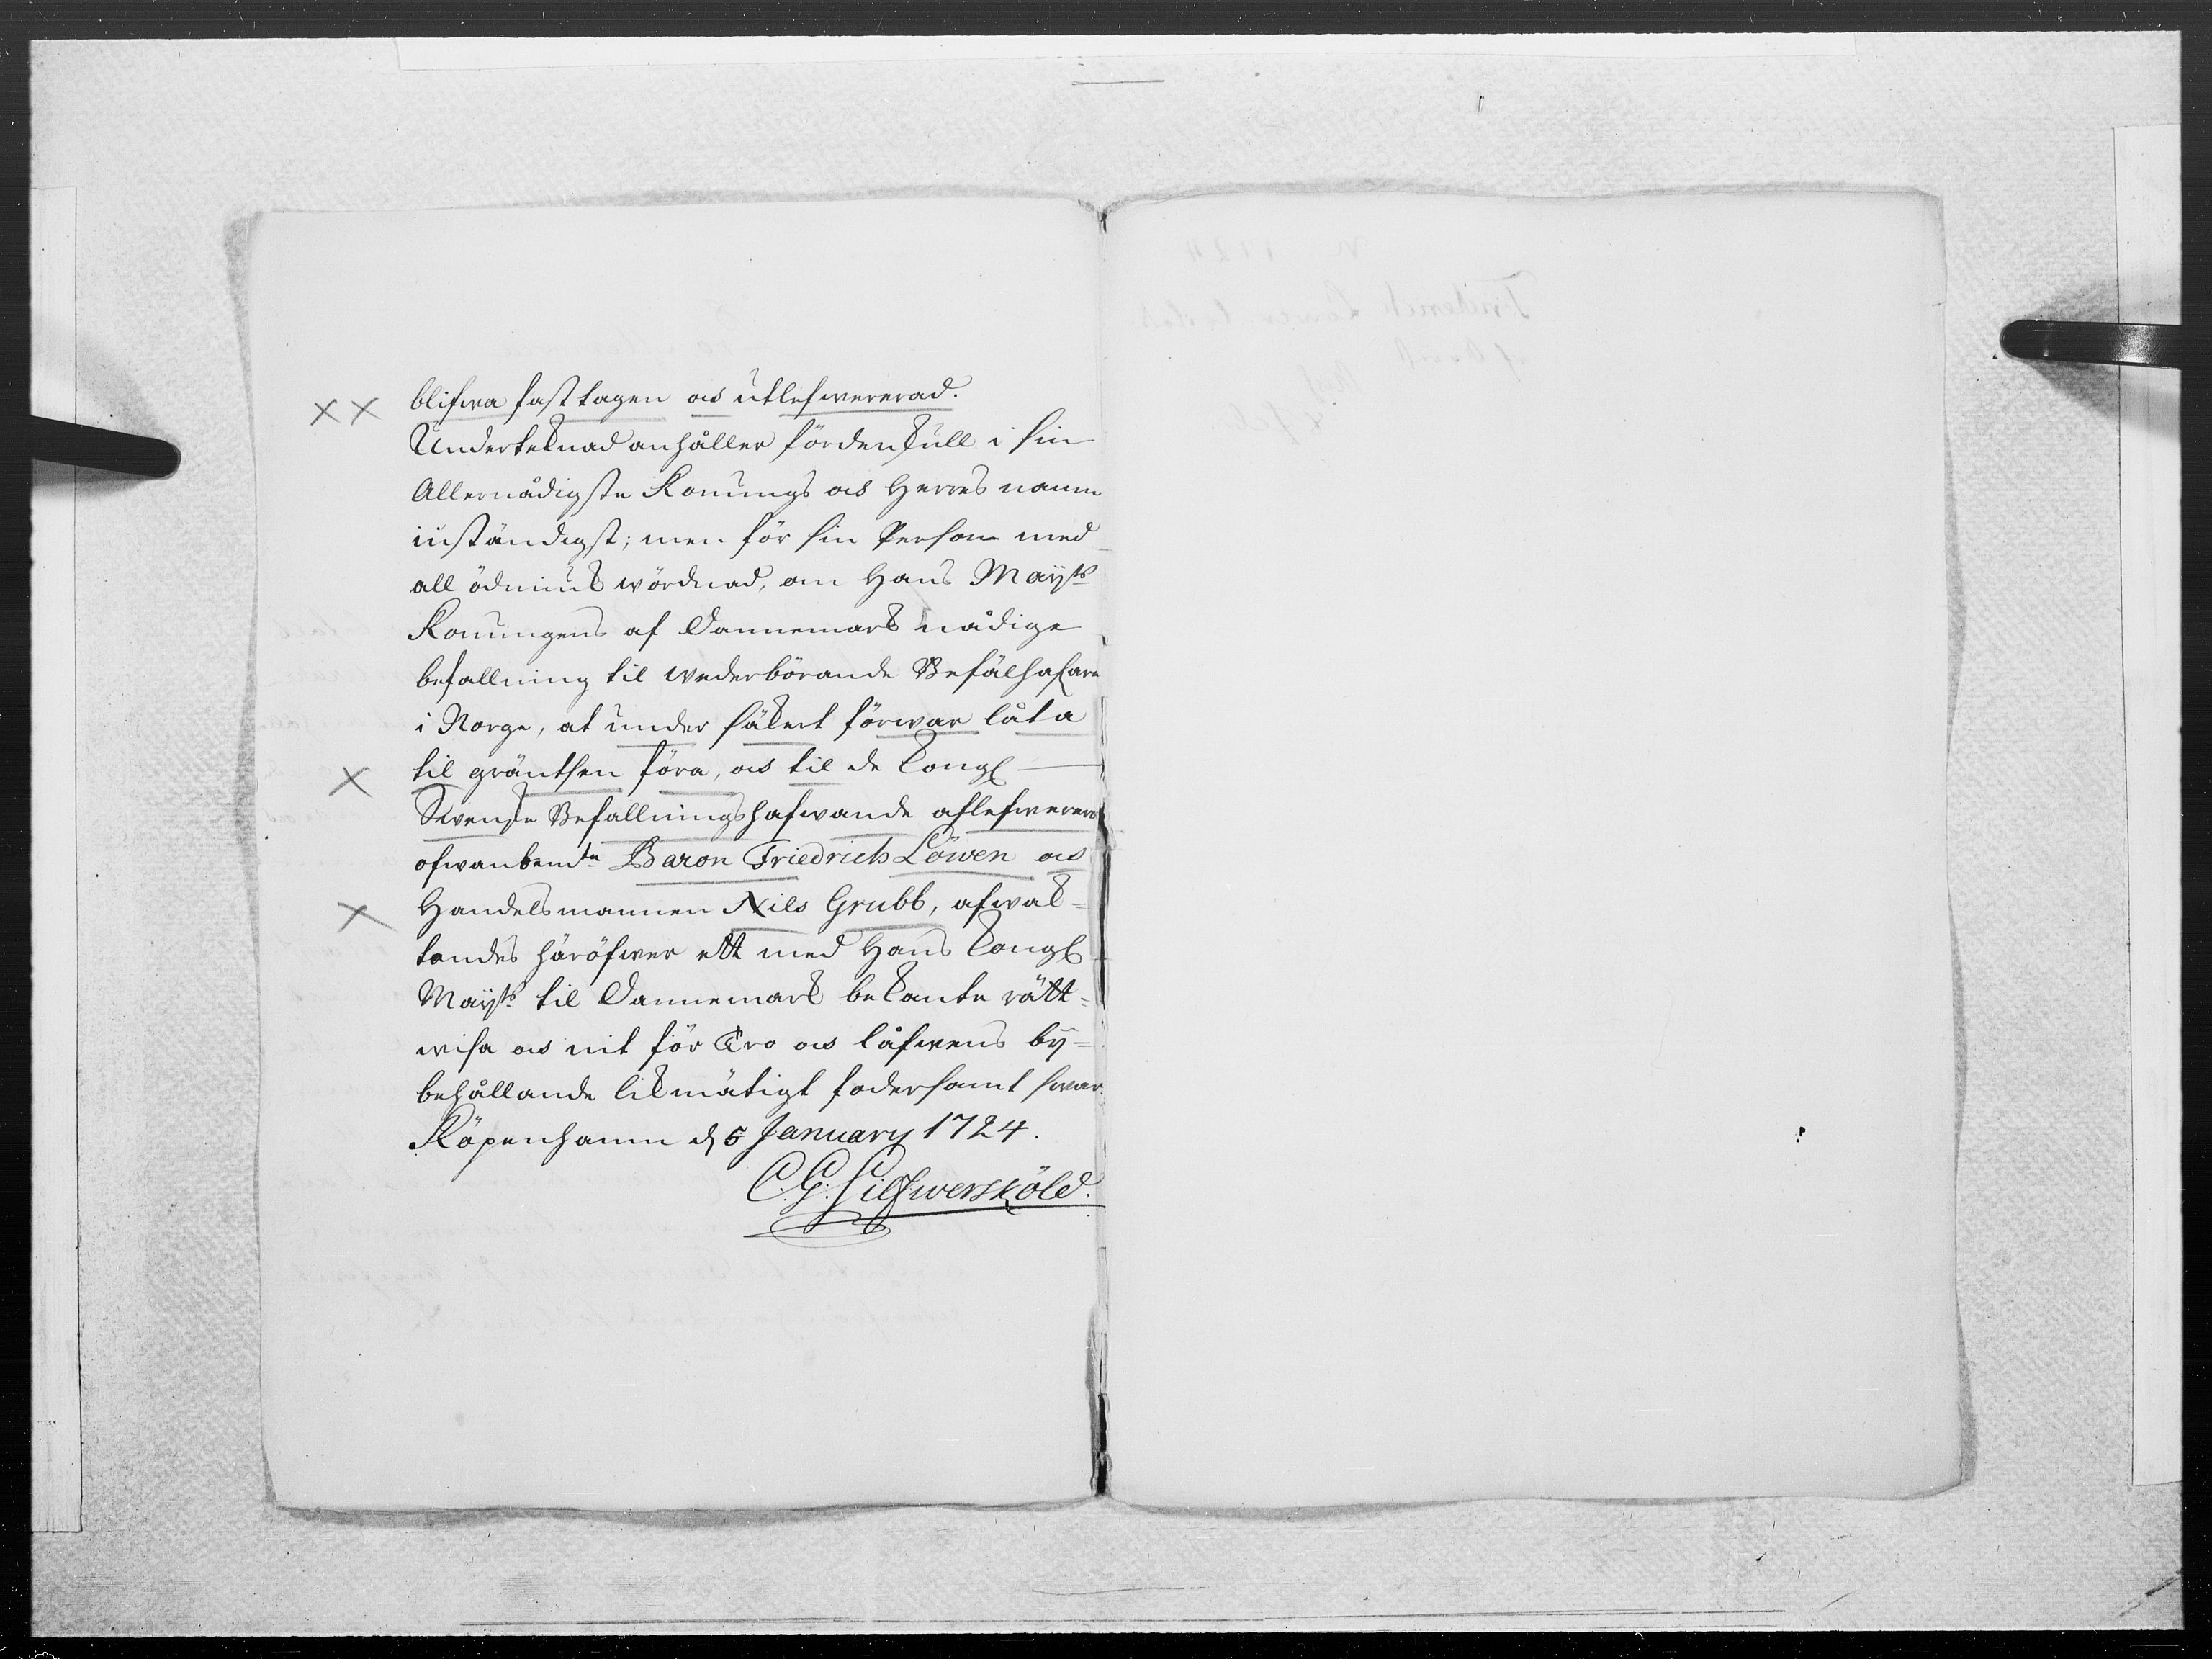 blifwa fast tagen och utlefwererad.
Underteknad anhåller fördenskull i sin
Allernådigste Konungs och Herres namn
inständigst; men för sin Person med
all ödmiuk wördnad, om Hans Mayts
Konungens af Dannemark nådige
befallning til wederbörande Befälhafare
i Norge, at under säkert förwar låta
til gräntsen föra, och til de Kongl
Swenske Befallningshafwande aflefwerera
ofwanbemte Baron Friedrich Löwen och
Handelsmannen Nils Grubb, afwak=
tandes häröfwer ett med Hans Kongl
Mayts til Dannemark bekante rätt=
wisa och nit för Tro och låfwens by=
behållande likmätigt fodersamt swar.
Köpenhamn d 5 January 1724.
C. G. Silfwersköld.